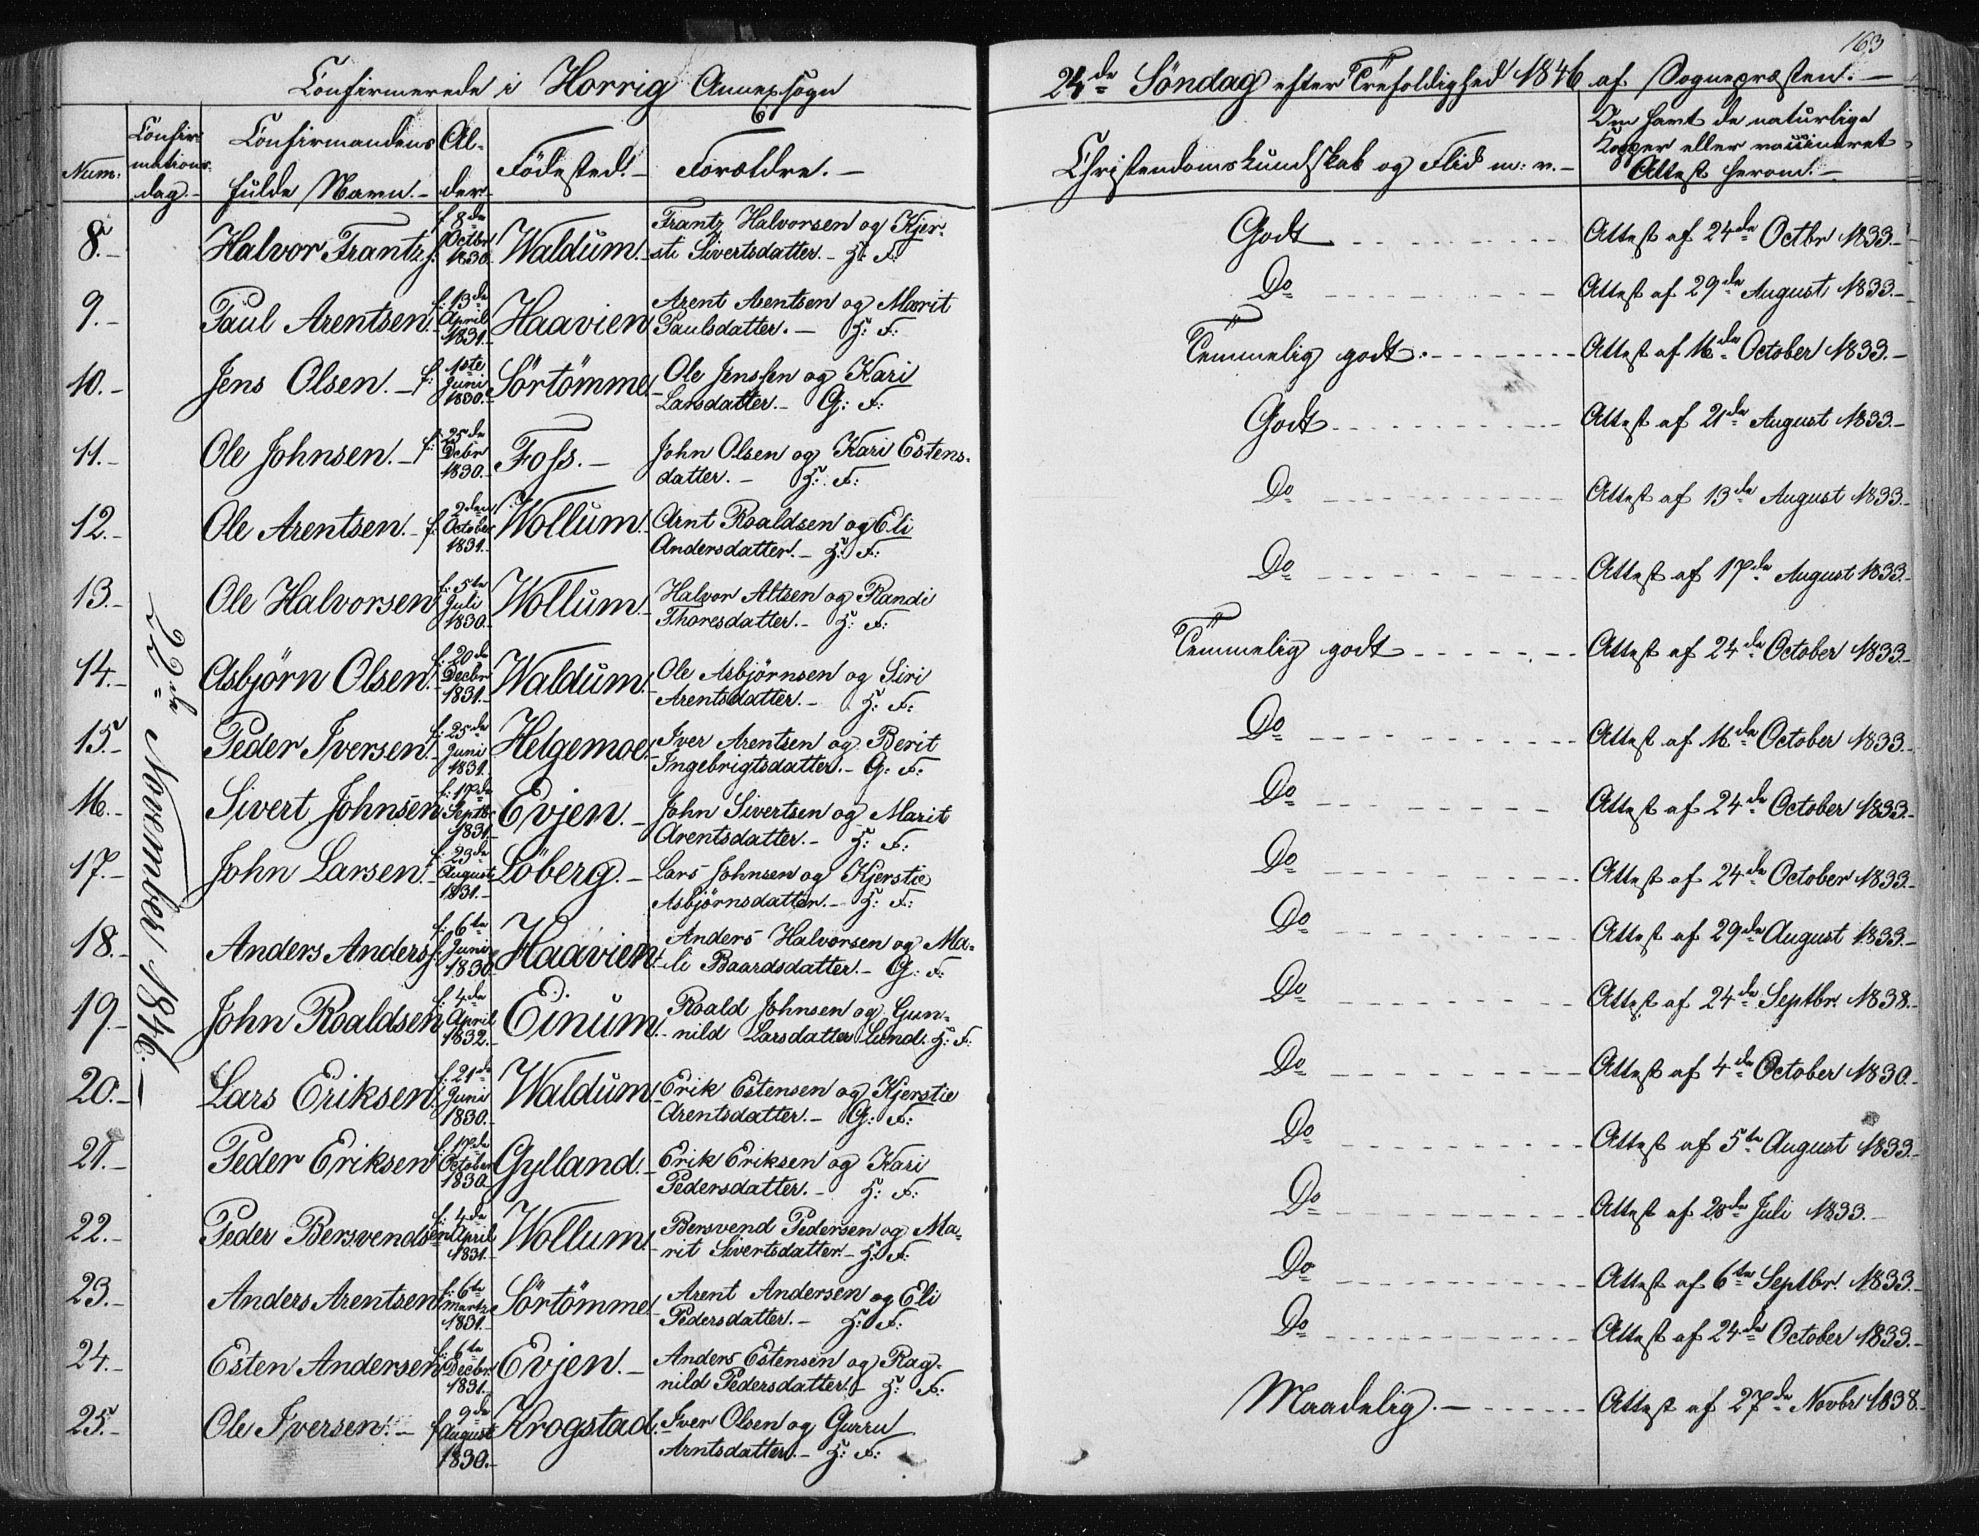 163
Confirmerede i Horrig Annexsogn
24de Söndag efter Trefoldighed 1846 af Sognepræsten.-
Num:
Confir-
mations-
dag.-
Confirmandens
fulde Navn.-
Al-
der-
Födested.-
Forældre.-
Christendoms kundskab og Flid m: v.-
Om havt de naturlige
Kopper eller vaccineret
Attest herom.-
22de November 1846.-
8.- Halvor Frantzs. f 8de Octbr 1830 Waldum.- Frantz Halvorsen og Kjer-
sti Sivertsdatter.- H: F: Godt Attest af 24de Octbr 1833.-
9.- Paul Arentsen.- f: 13de April 1831.- Haavien Arent Arentsen og Marit
Paulsdatter.- H: F: Do Attest af 29de August 1833.-
10.- Jens Olsen.- f: 1ste Juni 1830.- Sörtömme Ole Jenssen og Kari
Larsdatter.- G: F: Temmelig godt. Attest af 16de October 1833.-
11.- Ole Johnsen.- f: 25de Debr 1830.- Foss.- John Olsen og Kari Estens-
datter.- H: F: Godt Attest af 21de August 1833.-
12.- Ole Arentsen.- f: 2den October 1831.- Wollum.- Arnt Roaldsen og Eli
Andersdatter.- H: F: Do Attest af 13de August 1833.-
13.- Ole Halvorsen f: 5te Juli 1830.- Wollum.- Halvor Altsen og Randi
Thoresdatter.- H: F: Do Attest af 17de August 1833.-
14.- Asbjörn Olsen.- f: 20de Decbr 1831.- Waldum.- Ole Asbjörnsen og Siri
Arentsdatter.- H: F: Temmelig godt Attest af 24de October 1833.-
15.- Peder Iversen.- f: 25de Juni 1831.- Helgemoe.- Iver Arentsen og Berit
Ingebrigtsdatter.- G: F: Do Attest af 16de October 1833.-
16.- Sivert Johnsen f: 17de Septbr 1831.- Evjen.- John Sivertsen og Marit
Arentsdatter.- H: F: Do Attest af 24de October 1833.-
17.- John Larsen.- f: 23de August 1831.- Löberg.- Lars Johnsen og Kjerstie
Asbjörnsdatter.- H: F: Do Attest af 24de October 1833.-
18.- Anders Anderss. f: 6te Juni 1830 Haavien Anders Halvorsen og Ma-
li Baardsdatter.- G: F: Do Attest af 29de August 1833.-
19.- John Roaldsen f: 4de April 1832.- Einum.- Roald Johnsen og Gun-
nild Larsdatter Lund. H: F: Do Attest af 24de Septbr. 1838.-
20.- Lars Eriksen.- f: 21de Juni 1830.- Waldum.- Erik Estensen og Kjerstie
Arentsdatter.- G: F: Do Attest af 4de October 1830.-
21.- Peder Eriksen f: 17de October 1830 Gylland.- Erik Eriksen og Kari
Pedersdatter.- H: F: Do Attest af 5te August 1833.-
22.- Peder Bersvendsen f: 4de April 1831.- Wollum.- Bersvend Pedersen og Ma-
rit Sivertsdatter.- H: F: Do Attest af 20de Juli 1833.-
23.- Anders Arentsen f: 6te Martz 1831.- Sörtömme. Arent Andersen og Eli
Pedersdatter.- H: F: Do Attest af 6te Septbr. 1833.-
24.- Esten Andersen f: 6te Decbr 1831.- Evjen.- Anders Estensen og Rag-
nild Pedersdatter.- H: F: Do Attest af 24de October 1833.-
25.- Ole Iversen.- f 9de August 1830.- Krogstad. Iver Olsen og Gurru
Arntsdatter.- H: F: Maadelig.- Attest af 27de Novbr 1838.